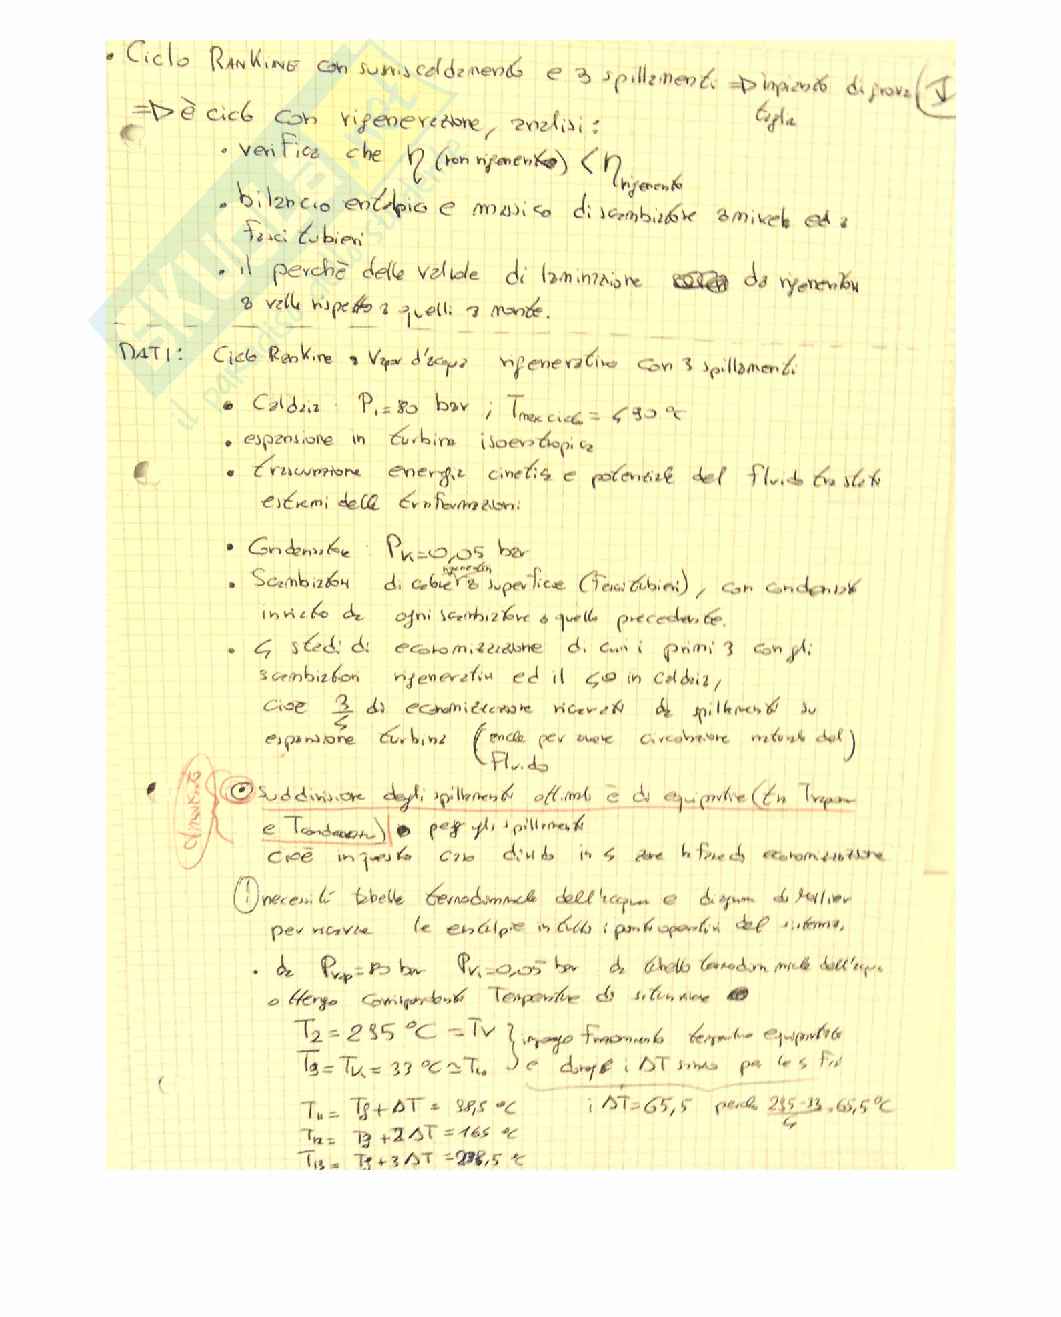 • Ciclo RANKINE con surriscaldamento e 3 spillamenti => impianto di prova I
=> è ciclo con rigenerazione, analisi: taglia
• verifica che η (non rigenerato) < η rigenerato
• bilancio entalpico e massico di scambiatore a miscela ed a
fasci tubieri
• il perchè delle valvole di laminazione da rigeneratori
a valle rispetto a quelli a monte.
DATI: Ciclo Rankine a Vapor d'acqua rigenerativo con 3 spillamenti
• Caldaia: P1=80 bar ; Tmax ciclo = 490 °C
• espansione in turbina isoentropica
• trascurazione energia cinetica e potenziale del fluido tra stati
estremi delle trasformazioni.
• Condensatore: PK=0,05 bar
• Scambiatori di calore a superficie (fasci tubieri), con condensato
rigenerativi
inviato da ogni scambiatore a quello precedente.
• 4 stadi di economizzazione di cui i primi 3 con gli
scambiatori rigenerativi ed il 4° in caldaia,
cioè 3/4 di economizzazione ricavati da spillamenti su
espansione turbina (anche per avere circolazione naturale del)
fluido
• Suddivisione degli spillamenti ottimale è di equipartire (tra Tvapore
e Tcondensatore) per gli spillamenti
cioè in questo caso divido in 4 zone la fase di economizzazione
! necessito tabelle termodinamiche dell'acqua e diagramma di Mollier
per ricavare le entalpie in tutti i punti operativi del sistema.
• da Pvap=80 bar PK=0,05 bar da tabelle termodinamiche dell'acqua
ottengo corrispondente Temperatura di saturazione
T2 = 295 °C = TV } impongo frazionamento temperature equipartito
T9 = TK = 33 °C ≃ T10 } e dunque i ΔT sono per le 4 fasi
T11 = T9 + ΔT = 98,5 °C i ΔT=65,5 perchè 295-33/4 = 65,5°C
T12 = T9 + 2ΔT = 165 °C
T13 = T9 + 3ΔT = 228,5 °C